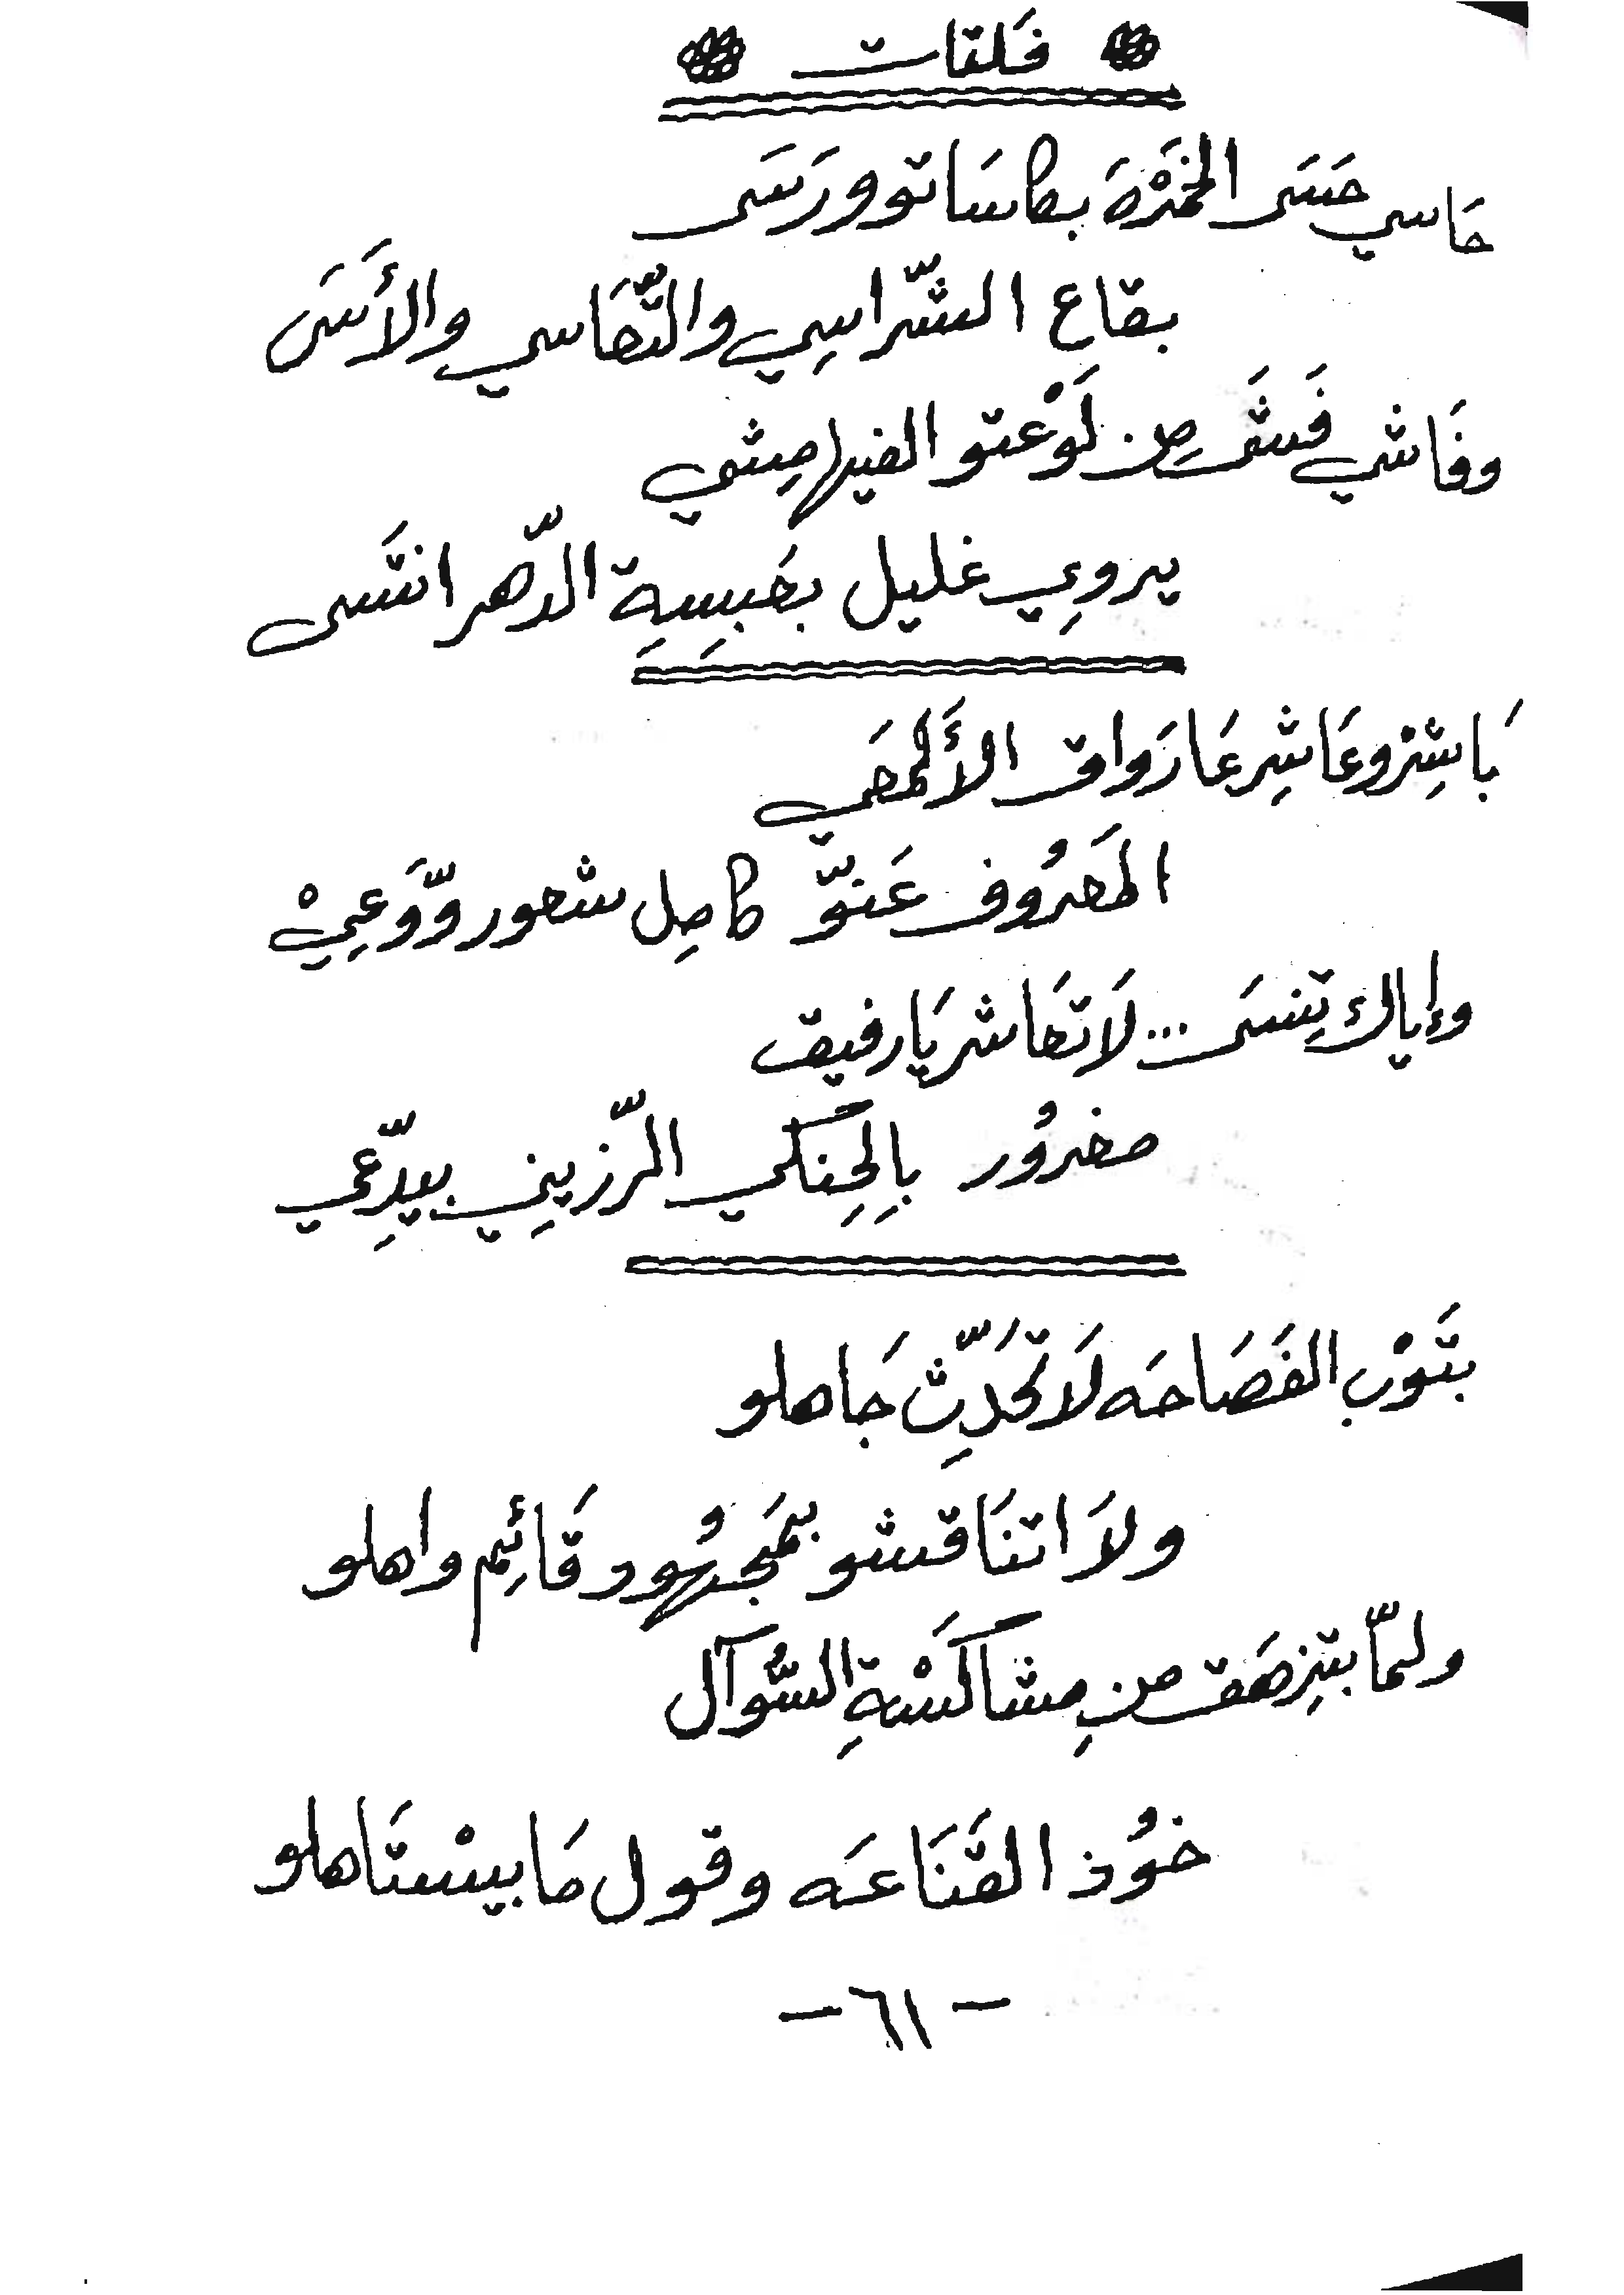 فَلتات
حَاسي حَسَى الخَمْرَة بكاسَاتو ورَسَى
بقاع الشّراسِي والتّعَاسي والأَسَى
وفَاشي فَشَى مِن لَوْعتو الفيها مِشي
يروِي غليل بعَبسِةِ الدّهر انتَسى
بَاشِرْ وعَاشِر عَا رَواق الأَلمعَي
المَعرُوف عَنوّ كامِل شعور وّوَعِيْ
وإياك تِنسَى ... لَا تعَاشر يَا رفيق
مغرُور بِالحِنكي الرّزينِي بيدّعِي
بتَوْب الفَصَاحَه لَا تحَدِّث جَاهلو
ولَا اتنَاقشو بمَجهُود قَائِم واهلو
ولمّا بتِزهَق من مِشاكَسْةِ السُّوآل
خوُذ القَنَاعَه وقول مَا بيسْتَاهلو
- ٦١ -